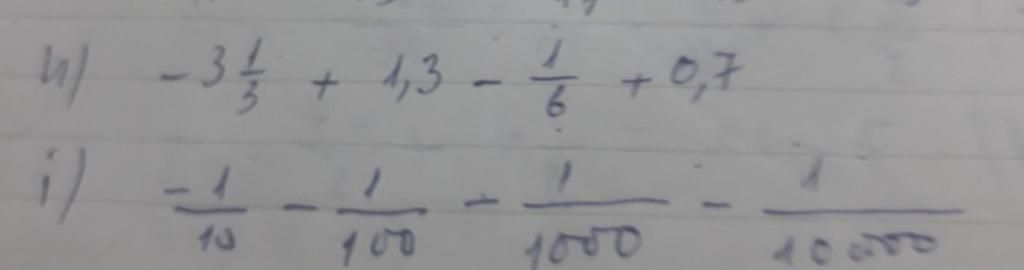 h) -3 1/3 + 1,3 - 1/6 + 0,7
i) -1/10 - 1/100 - 1/1000 - 1/10000